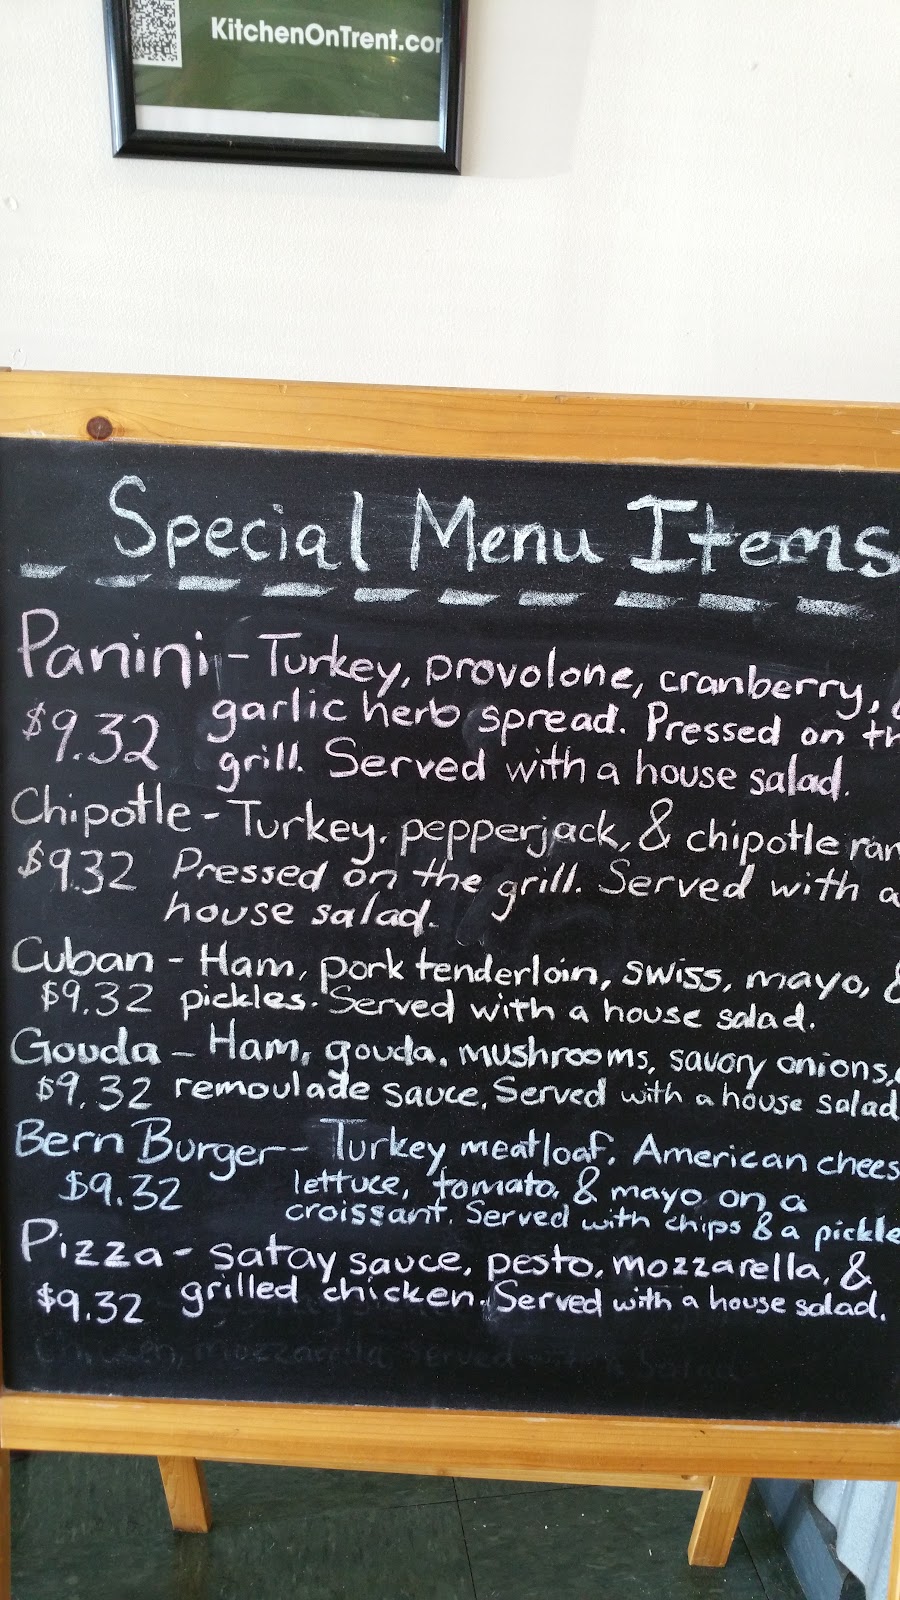 KitchenOnTrent.com
Special Menu Items
Panini - Turkey, provolone, cranberry, &
$9.32 garlic herb spread. Pressed on th
grill. Served with a house salad.
Chipotle - Turkey, pepperjack, & chipotle ran
$9.32 Pressed on the grill. Served with a
house salad.
Cuban - Ham, pork tenderloin, swiss, mayo, &
$9.32 pickles. Served with a house salad.
Gouda - Ham, gouda, mushrooms, savory onions,
$9.32 remoulade sauce. Served with a house salad
Bern Burger - Turkey meatloaf, American chees
$9.32 lettuce, tomato, & mayo on a
croissant. Served with chips & a pickle
Pizza - satay sauce, pesto, mozzarella, &
$9.32 grilled chicken. Served with a house salad.
Chicken, mozzarella Served with a Salad